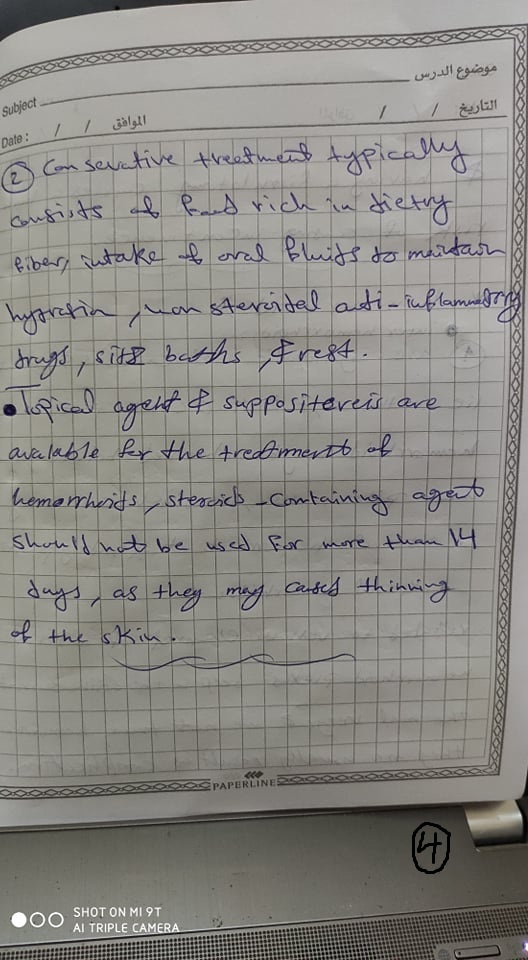 موضوع الدرس
Subject
التاريخ / / الموافق / / Date :
② Consevative treetment typically
consists of food rich in dietry
fiber, intake of oral fluids to maintain
hydration, non steroidal anti-inflammatory
drugs, sitz baths, & rest.
• Topical agent & suppositereis are
avalable for the treatment of
hemorrhoids, steroids-containing agent
should not be used for more than 14
days, as they may cases thinning
of the skin.
PAPERLINE
4
SHOT ON MI 9T
AI TRIPLE CAMERA